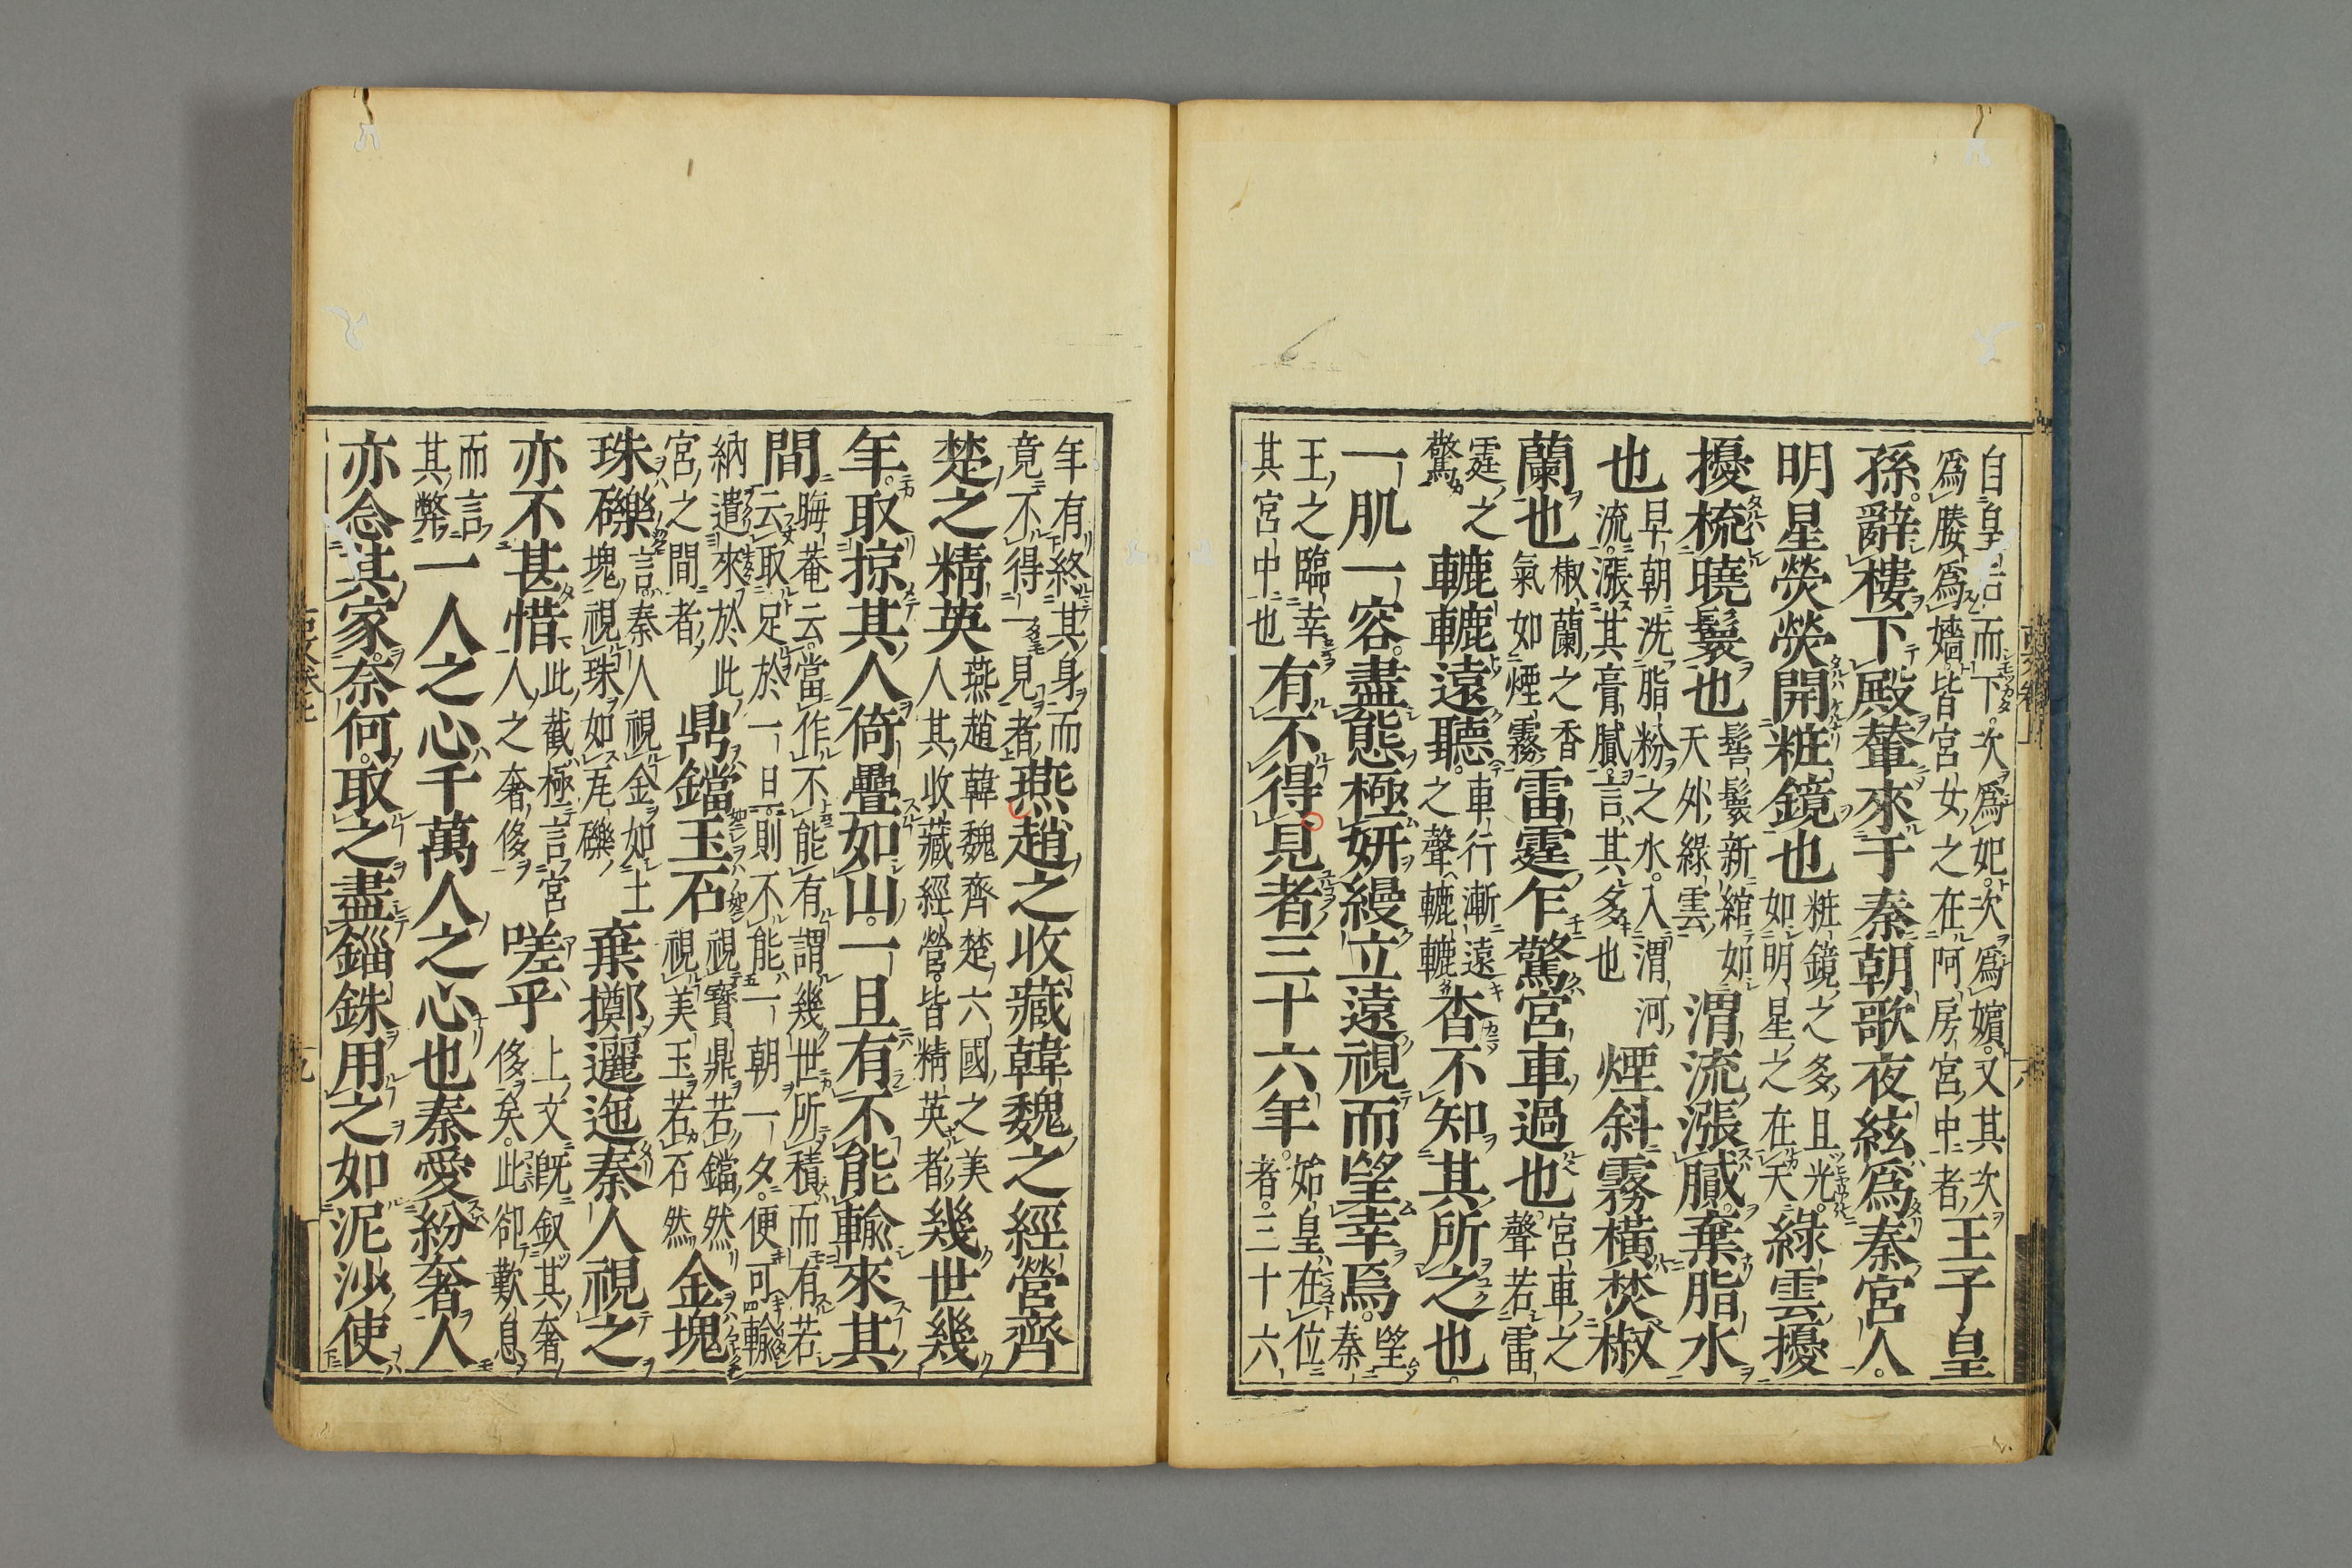 自皇后而下次爲妃次爲嬪又其次
爲媵爲嬙皆宮女之在阿房宮中者王子皇
孫辭樓下殿輦來于秦朝歌夜絃爲秦宮人
明星熒熒開粧鏡也粧鏡之多且光
如明星之在天綠雲擾
擾梳曉鬟也髻鬟新綰如
天外綠雲渭流漲膩棄脂水
也早朝洗脂粉之水入渭河
流漲其膏膩言其多也煙斜霧橫焚椒
蘭也椒蘭之香
氣如煙霧雷霆乍驚宮車過也宮車之
聲若雷
霆之
驚轆轆遠聽車行漸遠
之聲轆轆杳不知其所之也
一肌一容盡態極妍縵立遠視而望幸焉望
秦
王之臨幸
其宮中也有不得見者三十六年始皇在位
者三十六
年有終其身而
竟不得一見者燕趙之收藏韓魏之經營齊
楚之精英燕趙韓魏齊楚六國之美
人其收藏經營皆精英者幾世幾
年取掠其人倚疊如山一旦有不能輸來其
間晦菴云當作不能有謂幾世所積而有若
云取足於一旦則不能一朝一夕便可輸
納遣來於此
宮之間者鼎鐺玉石視寶鼎若鐺然
視美玉若石然金塊
珠礫言秦人視金如土
塊視珠如瓦礫棄擲邐迤秦人視之
亦不甚惜此截極言宮
人之奢侈嗟乎上文旣叙其奢
侈矣此卻歎息
而言
其弊一人之心千萬人之心也秦愛紛奢人
亦念其家奈何取之盡錙銖用之如泥沙使